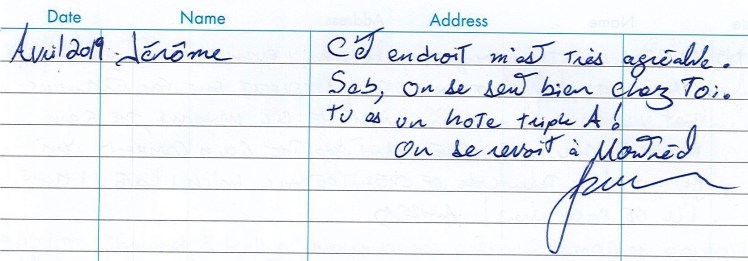 Date Name Address
Avril 2019. Jérôme Cet endroit m'est très agréable.
Seb, on se sent bien chez Toi.
tu es un hote triple A!
On se revoit à Montréal